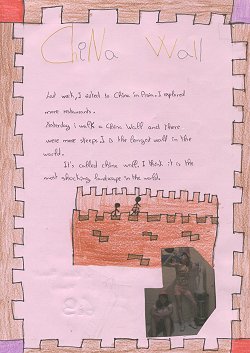 ChiNa Wall
Last week, I asked to China in Plain. I explored
more restaurants.
Yesterday i walk a China Wall and There
were more steeps. I is the longest wall in the
world.
It's called china wall. I think it is the
most shocking landscape in the world.